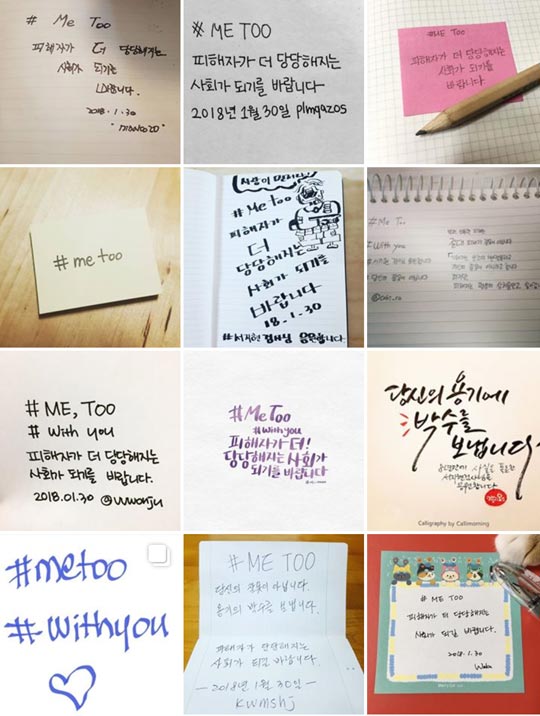 # Me Too
피해자가 더 당당해지는
사회가 되기를
바랍니다.
2018.1.30
# ME TOO
피해자가 더 당당해지는
사회가 되기를 바랍니다
2018년 1월 30일 plmqazos
#ME TOO
피해자가 더 당당해지는
사회가 되기를
바랍니다
#metoo
#Me Too
피해자가
더
당당해지는
사회가 되기를
바랍니다
18.1.30
#서지현 검사님 응원합니다
#Me Too
#With you
# ME, TOO
# With you
피해자가 더 당당해지는
사회가 되기를 바랍니다.
2018.01.30 @wwonju
#MeToo
#withyou
피해자가 더!
당당해지는 사회가
되기를 바랍니다
당신의 용기에
박수를
보냅니다
Calligraphy by Callimorning
#metoo
#withyou
#ME TOO
당신의 잘못이 아닙니다.
용기의 박수를 보냅니다.
피해자가 당당해지는
사회가 되길 바랍니다.
- 2018년 1월 30일 -
kwmshj
# ME TOO
피해자가 더 당당해지는
사회가 되길 바랍니다.
2018.1.30